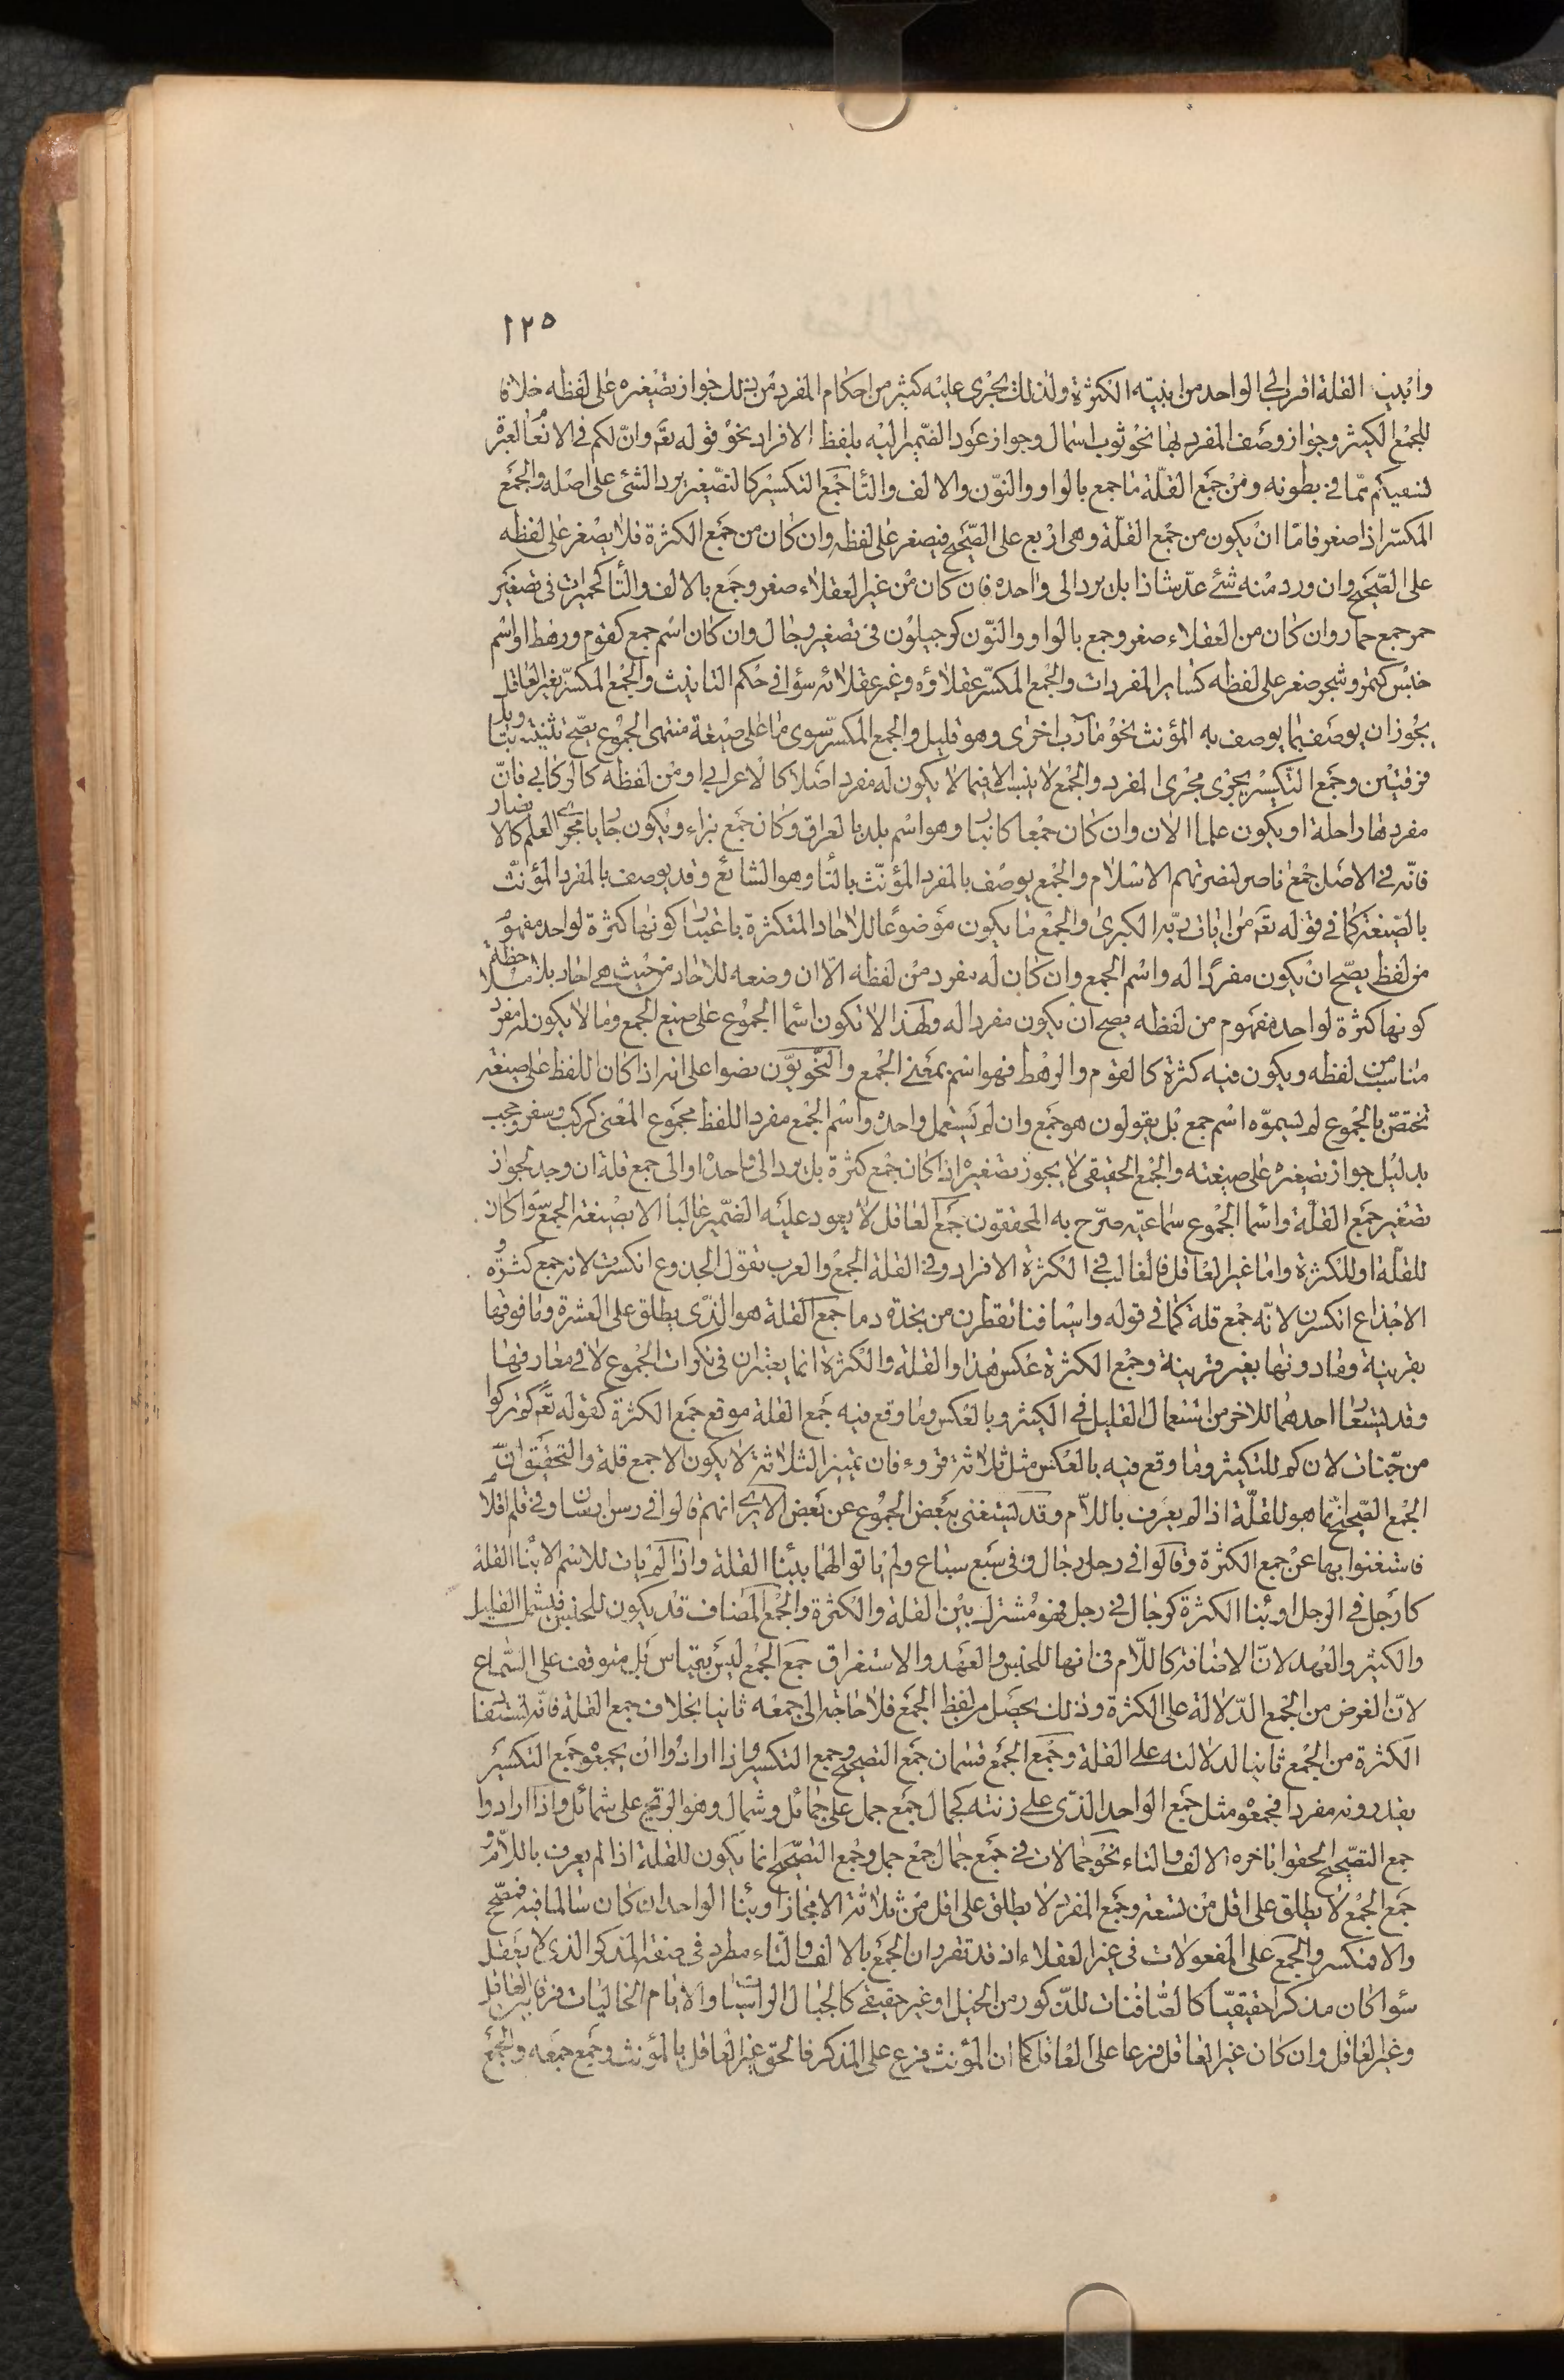 ١٢٥
وابنية القلة اقرب الى الواحد من ابنية الكثرة ولذلك يجرى عليه كثير من احكام المفرد من ذلك جواز تصغيره على لفظه خلافا
للجمع الكثير وجواز وصف المفرد بها نحو ثوب اسمال وجواز عود الضمير اليه بلفظ الافراد نحو قوله تعه وانّ لكم فى الانعام لعبرة
نسقيكم ممّا فى بطونه ومن جمع القلّة ما جمع بالواو والنوّن والالف والتا جمع التكسير كالتصّغير يرد الشئ على اصله والجمع
المكسّر اذا صغر فامّا ان يكون من جمع القلّة وهى اربع على الصّحيح فيصغر على لفظه وان كان من جمع الكثرة فلا يصغر على لفظه
على الصّحيح وان ورد منه شئ عدّ شاذا بل يرد الى واحده فان كان من غير العقلاء صغر وجمع بالالف والتا كحميرات فى تصغير
حمر جمع حمار وان كان من العقلاء صغر وجمع بالواو والنوّن كرجيلون فى تصغير رجال وان كان اسم جمع كقوم ورهط او اسم
جنس كتمر وشجر صغر على لفظه كساير المفردات والجمع المكسّر عقلاؤه وغير عقلائه سوا فى حكم التانيث والجمع المكسّر لغير العاقل
يجوز ان يوصف بما يوصف به المؤنث نحو مآرب اخرى وهو قليل والجمع المكسّر سوى ما على صيغة منتهى الجموع يصحّ تثنيته بتاويل
فرقتين وجمع التكسير يجرى مجرى المفرد والجمع لا ينسب الا فيما لا يكون له مفرد اصلا كالاعرابى او من لفظه كالركابى فانّ
مفردها راحلة او يكون علما الان وان كان جمعا كانبار وهو اسم بلد بالعراق وكان جمع نبراء ويكون جاريا مجرى العلم كالانصار
فانّه فى الاصل جمع ناصر لنصرتهم الاسلام والجمع يوصف بالمفرد المؤنّث بالتا وهو الشائع وقد يوصف بالمفرد المؤنث
بالصّيغة كما فى قوله تعه من ايات ربّه الكبرى والجمع ما يكون موضوعا للاحاد المتكثرة باعتبار كونها كثرة لواحد مفهوم
من لفظ يصحّ ان يكون مفردا له واسم الجمع وان كان له مفرد من لفظه الّا ان وضعه للاحاد من حيث هى احاد بلا ملاحظة
كونها كثرة لواحد مفهوم من لفظه يصح ان يكون مفردا له ولهذا لا تكون اسما الجموع على صيغ الجمع وما لا يكون له مفرد
مناسب من لفظه ويكون فيه كثرة كالقوم والرهط فهو اسم بمعنى الجمع والنحويّون نصوا على انه اذا كان اللفظ على صيغة
تختصّ بالجموع لم يسموّه اسم جمع بل يقولون هو جمع وان لم يستعمل واحده واسم الجمع مفرد اللفظ مجموع المعنى كركب وسفر وحجب
بدليل جواز تصغيره على صيغته والجمع الحقيقى لا يجوز تصغيره اذا كان جمع كثرة بل يرد الى واحده او الى جمع قلة ان وجد لجواز
تصغير جمع القلّة واسما الجموع سماعيّه صرّح به المحققون جمع العاقل لا يعود عليه الضّمير غالبا الا بصيغة الجمع سوا كان
للقلّة او للكثرة واما غير العاقل فالغالب فى الكثرة الافراد وفى القلة الجمع والعرب تقول الجذوع انكسرت لانه جمع كثرة و
الاجذاع انكسرن لانّه جمع قلة كما فى قوله واسيافنا تقطرن من نجدة دما جمع القلة هو الذّى يطلق على العشرة وما فوقها
بقرينة وما دونها بغير قرينة وجمع الكثرة عكس هذا والقلة والكثرة انما يعتبران فى نكرات الجموع لا فى معارفها
وقد يستعار احدهما للاخر من استعمال القليل فى الكثير وبالعكس وما وقع فيه جمع القلة موقع جمع الكثرة كقوله تعه كم تركوا
من جنات لان كم للتكثير وما وقع فيه بالعكس مثل ثلاثة قروء فان تمييز الثلاثة لا يكون الا جمع قلة والتحقيق انّ
الجمع الصّحيح انّما هو للقلّة اذا لم يعرف باللاّم وقد يستغنى ببعض الجموع عن بعض الا يرى انهم قالوا فى رسن ارسان وفى قلم اقلام
فاستغنوا بها عن جمع الكثرة وقالوا فى رجل رجال وفى سبع سباع ولم ياتوا لهما ببنا القلة واذا لم يات للاسم الا بنا القلة
كارجل فى الرجل او بنا الكثرة كرجال فى رجل فهو مشترك بين القلة والكثرة والجمع المضاف قد يكون للجنس فيشمل القليل
والكثير والعهد لانّ الاضافة كاللّام فى انها للجنس والعهد والاستغراق جمع الجمع ليس بقياس بل متوقف على السّماع
لانّ الغرض من الجمع الدّلالة على الكثرة وذلك يحصل من لفظ الجمع فلا حاجة الى جمعه ثانيا بخلاف جمع القلة فانّه تستفا
الكثرة من الجمع ثانيا لدلالته على القلة وجمع الجمع قسمان جمع التصحيح وجمع التكسير واذا ارادوا ان يجمعو جمع التكسير
يقدرونه مفردا فجمعو مثل جمع الواحد الذّى على زنته كجمال جمع جمل على جمائل وشمال وهو الريح على شمائل واذا ارادوا
جمع التصّحيح الحقوا باخره الالف والتاء نحو جمالات فى جمع جمال جمع جمل وجمع التصّحيح انما يكون للقلة اذا لم يعرف باللاّم و
جمع الجمع لا يطلق على اقل من تسعة وجمع المفرد لا يطلق على اقل من ثلاثة الا مجازا وبنا الواحد ان كان سالما فيه فصحّح
والا فمكسر والجمع على المفعولات فى غير العقلاء اذ قد تقرر ان الجمع بالالف والتاء مطرد فى صفة المذكر الذى لا يعقل
سوا كان مذكرا حقيقيّا كالصّافنات للذّكور من الخيل او غير حقيقى كالجبال الراسيات والايام الخاليات فرقا بين العاقل
وغير العاقل وان كان غير العاقل فرعا على العاقل كما ان المؤنث فرع على المذكر فالحق غير العاقل بالمؤنث وجمع جمعه والجمع